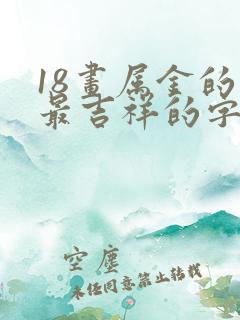 18畫属金的
最吉祥的字
空塵
未经同意禁止转载